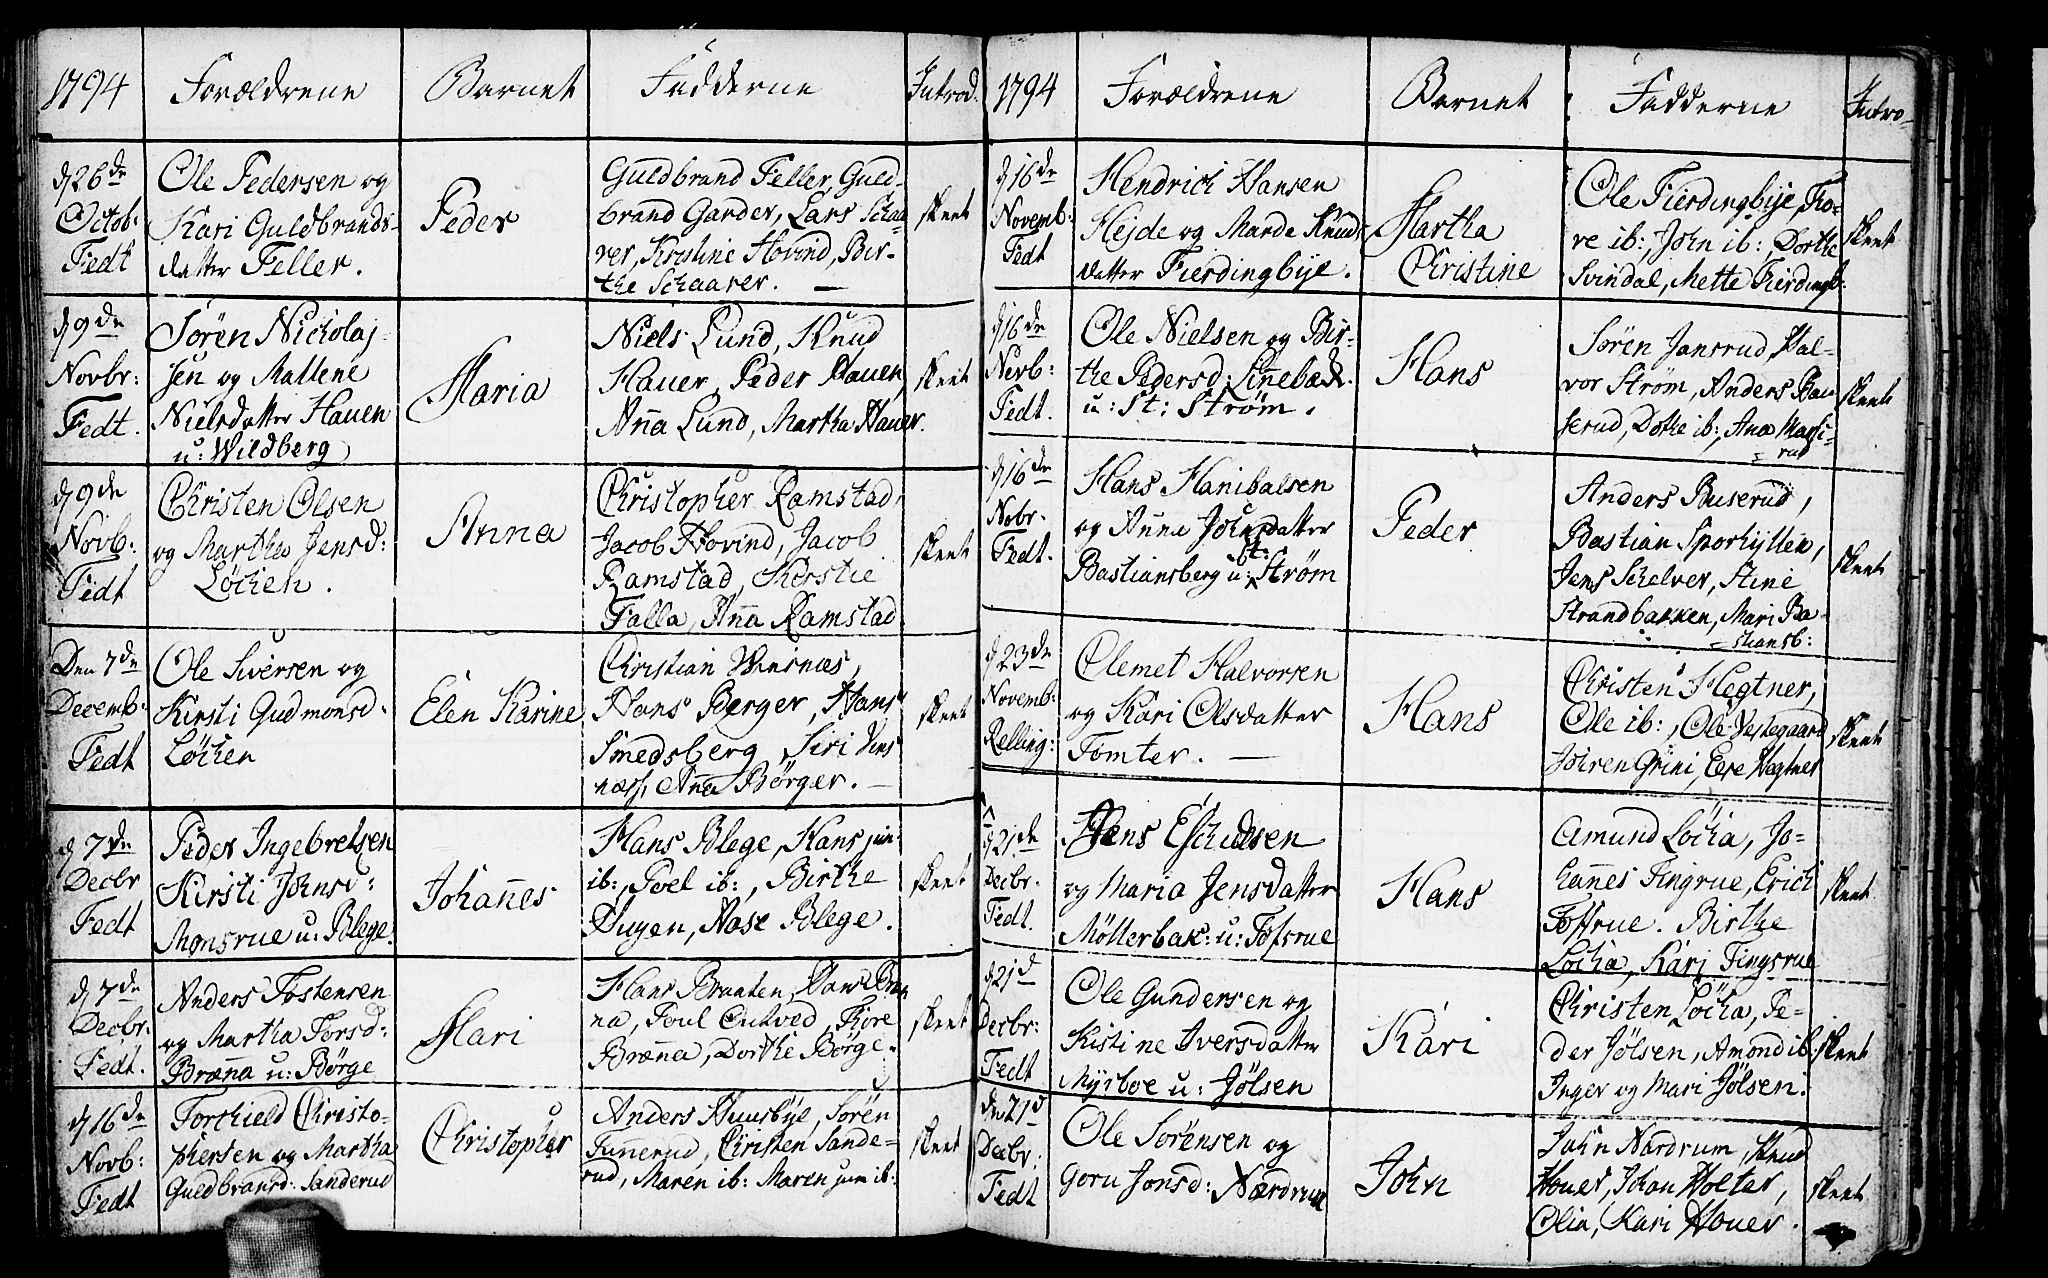 1794 Forældrene Barnet Fadderne Introd.
d 26de Octob: Fedt
Ole Pedersen og
Kari Guldbrands-
datter Feller.
Peder
Guldbrand Feller, Guld-
brand Garder, Lars Schaa-
rer, Kristine Hovind, Bir-
the Schaarer. —
skeet
d 9de Novbr: Fedt.
Sören Nickolaj-
sen og Mallene
Nielsdatter Hauen
u: Wildberg
Maria
Niels Lund, Knud
Hauer, Peder Hauen,
Anna Lund, Martha Hauer.
skeet
d 9de Novb: Fedt
Christen Olsen
og Martha Jensd:
Löchen.
Anna
Christopher Ramstad,
Jacob Hovind, Jacob
Ramstad, Kirstie
Falla, Anna Ramstad
skeet
Den 7de Decemb: Fedt
Ole Siversen og
Kirsti Gudmonsd:
Löchen
Elen Karine
Christian Winsnæs,
Hans Berger, Hans
Smedsberg, Siri Vins
næss, Ana Börger. —
skeet
d 7de Decbr Fedt
Peder Ingebretsen
Kirsti Johnsd:
Monsrue u: Blege.
Johannes
Hans Blege, Hans jun:
ib:, Poel ib:, Birthe
Hugen, Aase Blege.
skeet
d 7de Decbr: Fedt.
Anders Tostensen
og Martha Torsd:
Brænna u: Börge
Mari
Hans Braaten, Hans Bræn
na, Poul Ouhved, Tore
Brænna, Dorthe Börge.
skeet
d 16de Novb: Fedt
Torthield Christo-
phersen og Martha
Guldbransd: Sanderud
Christopher
Anders Huusbÿe, Sören
Funnerud, Christen Sande-
rud, Maren ib: Maren jun ib:
skeet
1794 Forældrene Barnet Fadderne Intro-
d 16de Novemb: Fedt
Hendrich Hansen
Hejde og Marde Knuds
datter Fierdingbÿe.
Martha
Christine
Ole Fierdingbije, To-
re ib:, John ib: Dorthe
Svindal, Mette Fierdingb:
skeet
d 16de Novb: Fedt.
Ole Nielsen og Bir-
the Pedersd: Linebæk
u: St: Ström.
Hans
Sören Jansrud, Hal-
vor Ström, Anders Bu
serud, Dothe ib:, Ana Mansi-
rud
skeet
d 16de Nobr. Fedt.
Hans Hanibalsen
og Anna Johnsdatter
Bastiansberg u: St: Ström
Peder
Anders Buserud,
Bastian Sporhytten,
Jens Schelver, Stine
Strandbakken, Mari Ba-
stiansb:
skeet
d 23de Novemb: Relling:
Clemet Halvorsen
og Kari Olsdatter
Tomter. —
Hans
Christen Hegtner,
Ole ib:, Ole Vestegaard
Jöhren Grini, Eere Hegtner
skeet
d 21de Decbr. Fedt.
Hens Eschelsen
og Maria Jensdatter
Möllerbak: u: Tofsrue
Hans
Amund Löcha, Jo-
hannes Tingrue, Erich
Toffrue. Birthe
Löcha, Kari Tingsrue
skeet
d 21d Decbr: Fedt
Ole Gundersen og
Kistine Iversdatter
Myrboe u: Jölsen
Kari
Christen Löcha, Pe-
der Jölsen, Amond ib:
Inger og Mari Jölsen.
skeet
den 21d Decbr: Fedt
Ole Sörensen og
Goru Jonsd: Nordrum
John
John Nordrum, Knud
Houer, Johan Holter,
Olia, Kari Houer.
skeet